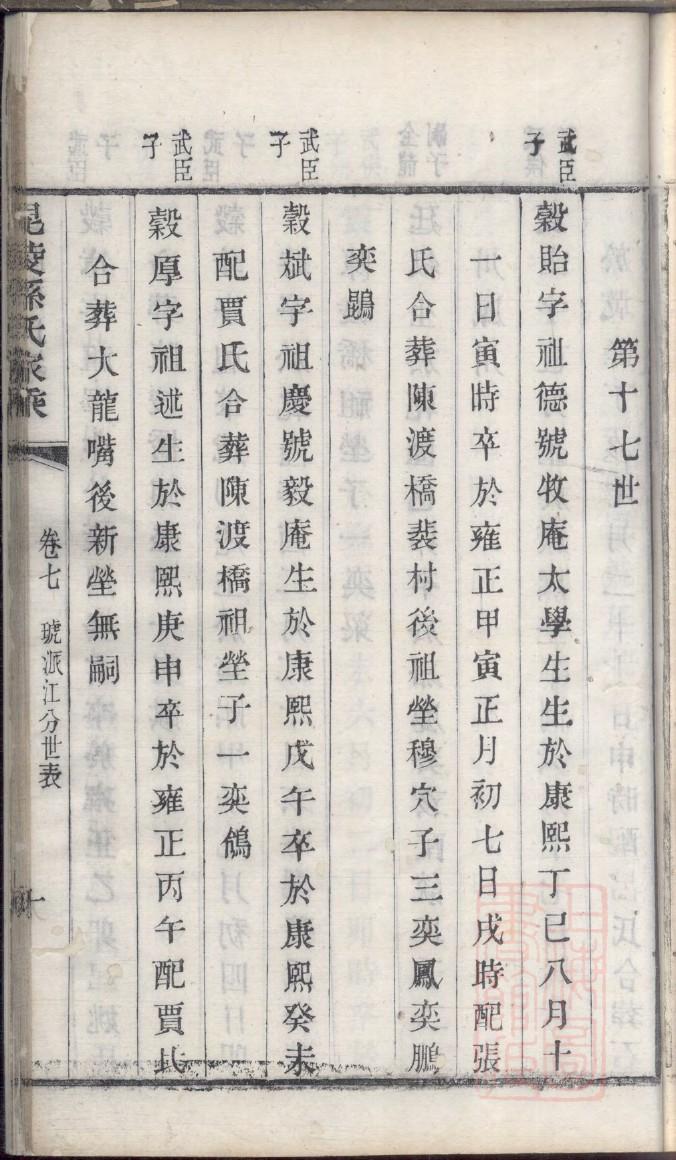 第十七世
武臣
子
穀貽字祖德號牧庵太學生生於康熙丁巳八月十
一日寅時卒於雍正甲寅正月初七日戌時配張
氏合葬陳渡橋裴村後祖塋穆穴子三奕鳳奕鵬
奕鶚
武臣
子
穀斌字祖慶號毅庵生於康熙戊午卒於康熙癸未
配賈氏合葬陳渡橋祖塋子一奕鴿
武臣
子
穀厚字祖述生於康熙庚申卒於雍正丙午配賈氏
合葬大龍嘴後新塋無嗣
毘陵孫氏家乘
卷七
琥派江分世表